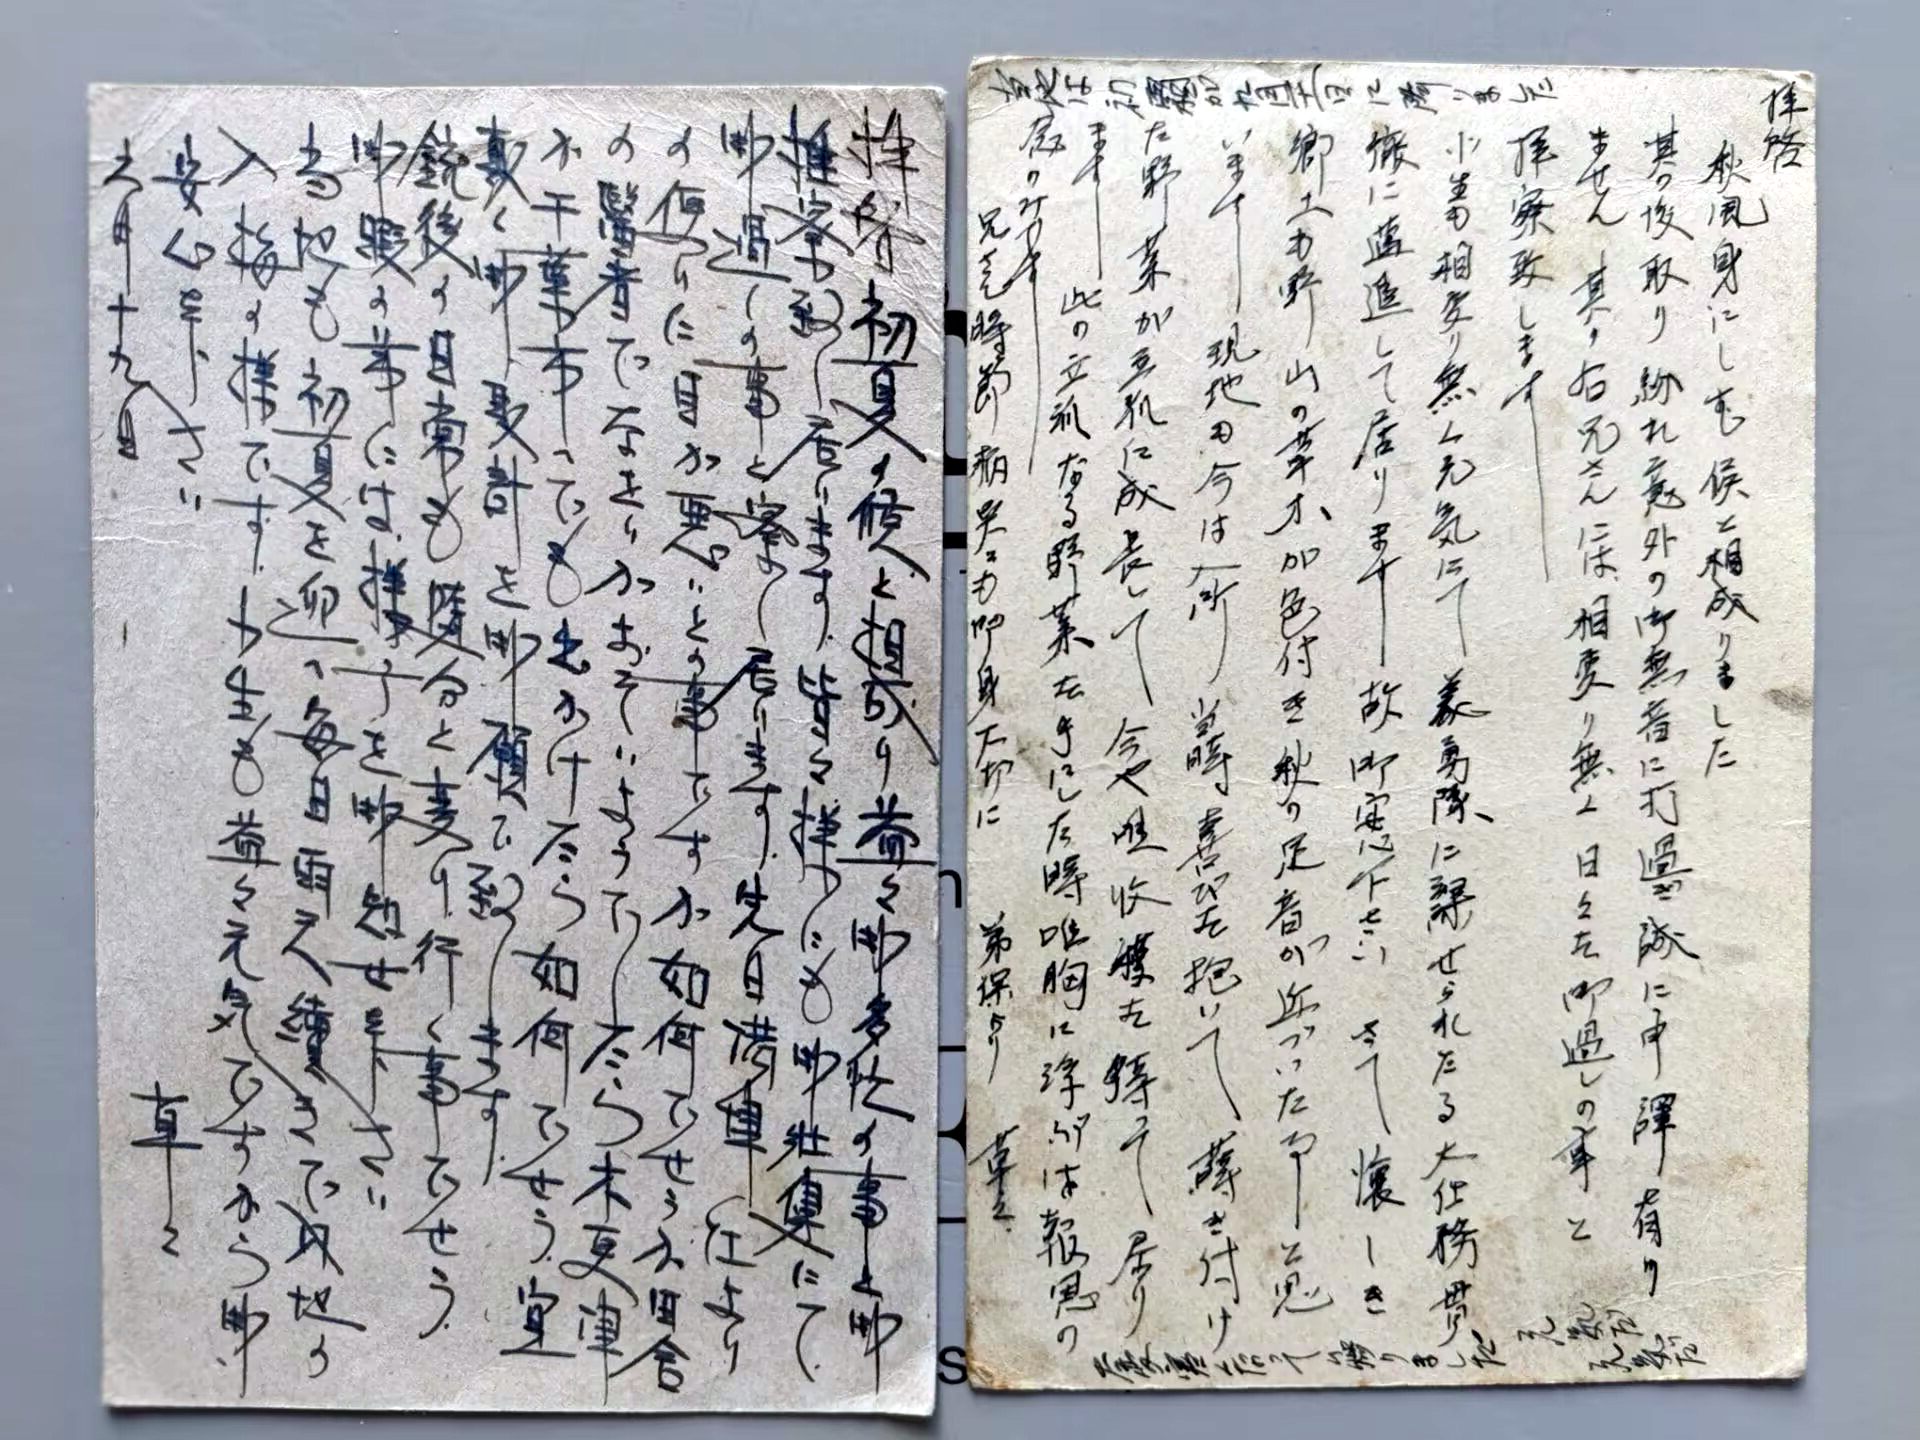 拝啓 初夏の候と相成り益々御多忙の事と御
推察致し居ります。皆々様方にも御壮健にて
御過しの事と察し居ります。先日満車 任より
の便りに目が悪いとの事ですが如何でせうか田舎
の醫者でなをりかおそいようでしたら木更津
か千葉市っでも出かけたら如何でせう。宜
敷く御養計を御願で致します。
銃後の日常も隨分と変り行く事でせう。
御暇の節には様子を御知せ下さい
当地も初夏を迎へ毎日雨天續きで内地の
入梅の様です。小生も益々元気ですから御
安心下さい
六月十九日
草々
拝啓
秋風身にしむ候と相成りました
其の後取り紛れ意外の御無音に打過ぎ誠に申譯有り
ません 其の后兄さんには相変り無く日々を御過しの事と
拝察致します
小生も相変り無く元気にて 義勇隊に課せられたる大任務貫
徹に邁進して居ります 故御安心下さい さて 懐しき
郷土も野山の草木が色付き秋の足音が近づいた事と思
います 現地も今は 当時喜びを抱いて 蒔き付け
た野菜が立派に成長して 今や唯収穫を待って居り
ます 此の立派なる野菜を手にした時唯胸に浮ぶは報恩の
念のみです
兄さん時節柄呉々も御身大切に 弟保より 草々